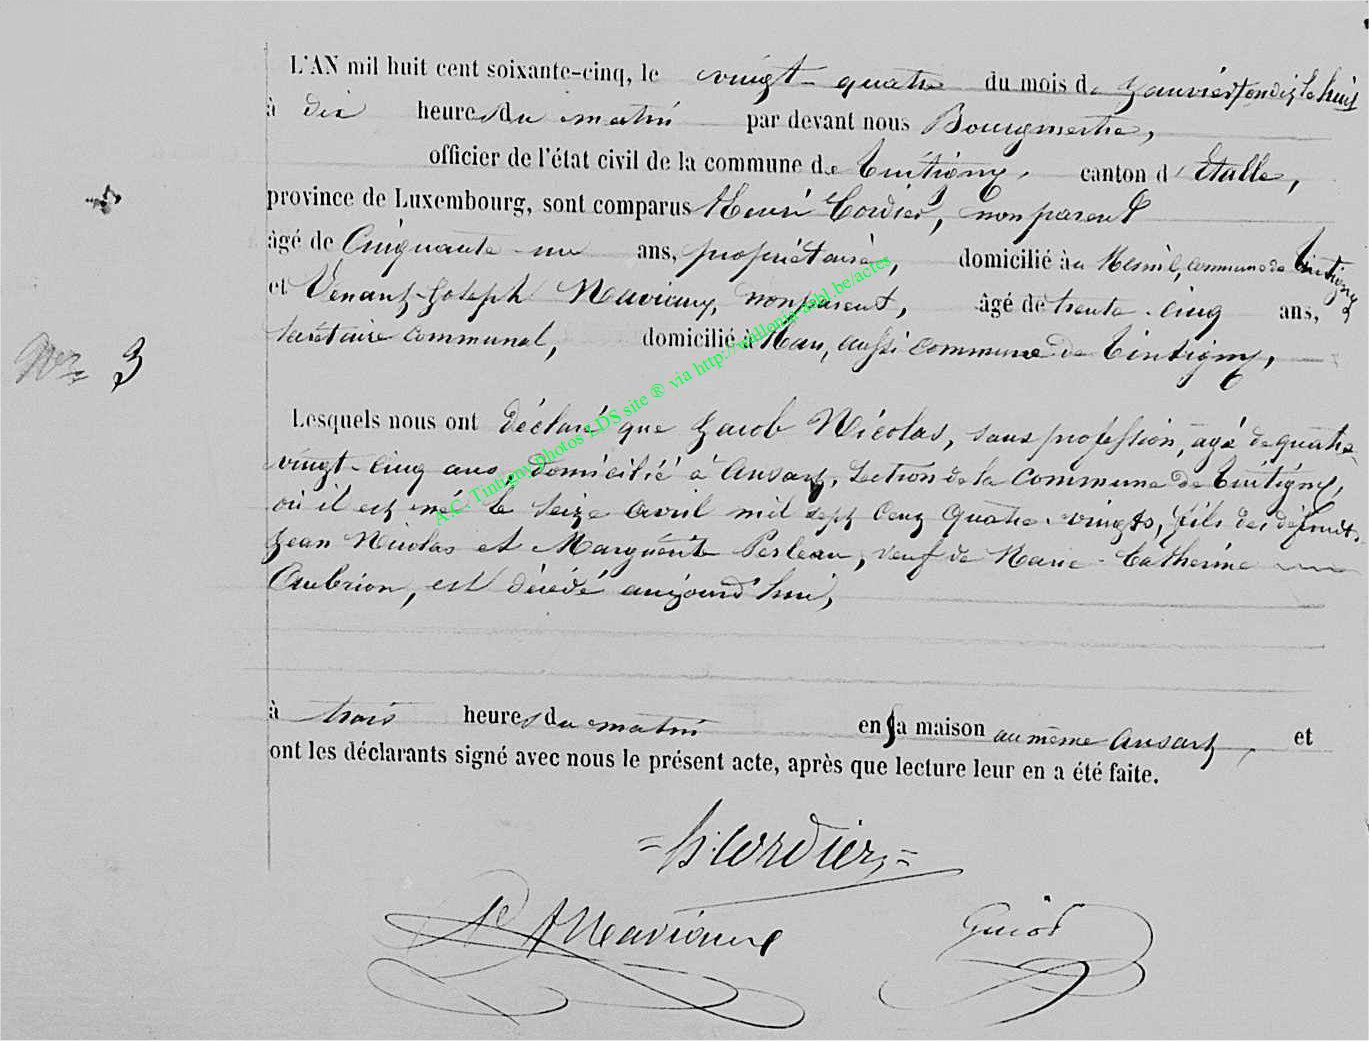 L'AN mil huit cent soixante-cinq, le vingt-quatre du mois de Janvier
à dix heures du matin par devant nous Bourgmestre,
officier de l'état civil de la commune de Tintigny, canton d'Etalle,
province de Luxembourg, sont comparus Henri Cordier, non parent
âgé de Cinquante-un ans, propriétaire, domicilié à Mesnil, commune de Tintigny
et Venant-Joseph non parent, âgé de trente-cinq ans,
Secrétaire communal, domicilié à Han, aussi commune de Tintigny,
Nro 3
Lesquels nous ont déclaré que Jacob Nicolas, sans profession, âgé de quatre
vingt-cinq ans, domicilié à Ansart, Section de la commune de Tintigny,
où il est né le seize avril mil sept cent quatre-vingts, fils des défunts
Jean Nicolas et Marguerite Perleau, veuf de Marie-Catherine
Aubrion, est décédé aujourd'hui,
à trois heures du matin en sa maison au même Ansart, et
ont les déclarants signé avec nous le présent acte, après que lecture leur en a été faite.
H. Cordier
Guiot
A.C. Tintigny photos LDS site ® via http://wallonia-asbl.be/actes